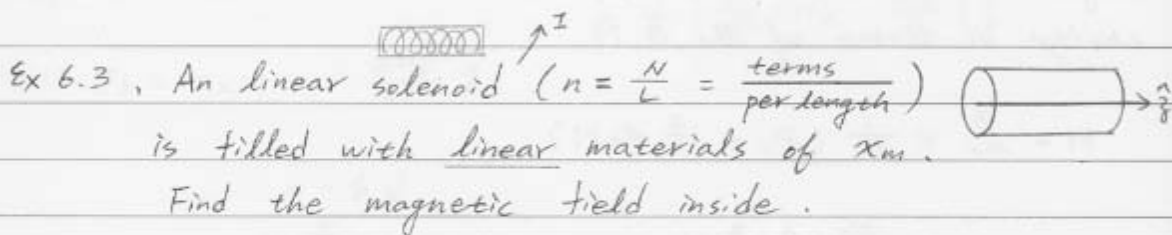 I
Ex 6.3, An linear solenoid (n = N/L = terms/per length)
ẑ
is filled with linear materials of χm.
Find the magnetic field inside.